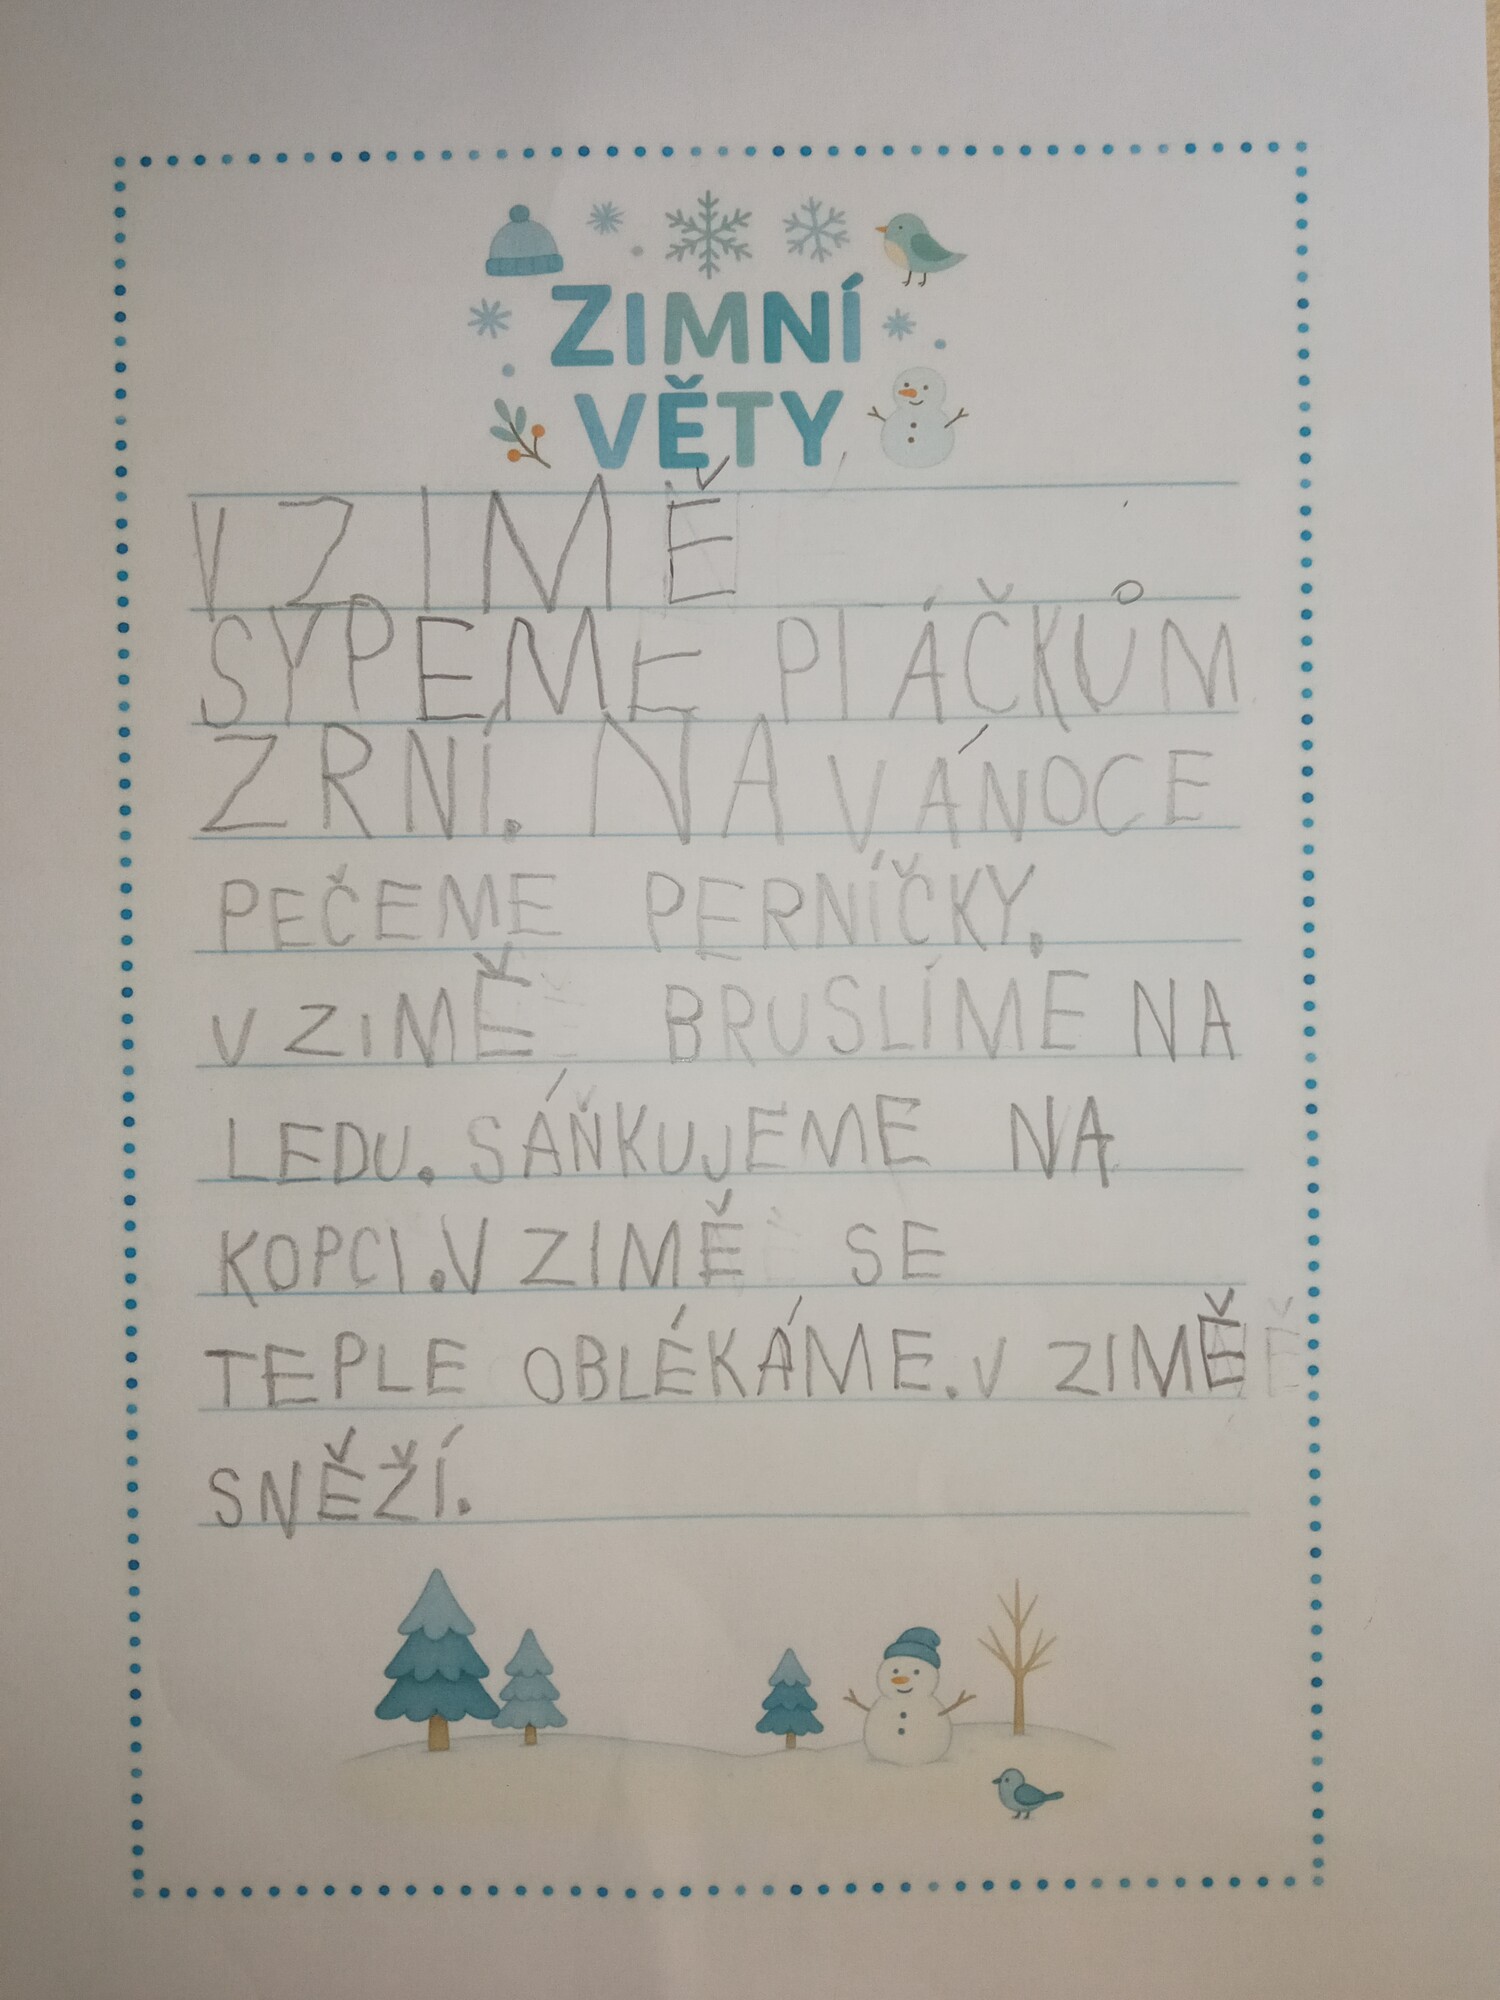 ZIMNÍ
VĚTY
V ZIMĚ
SYPEME PIÁČKŮM
ZRNÍ. NA VÁNOCE
PEČEME PERNÍČKY.
V ZIMĚ BRUSLÍME NA
LEDU. SÁŇKUJEME NA
KOPCI. V ZIMĚ SE
TEPLE OBLÉKÁME. V ZIMĚ
SNĚŽÍ.